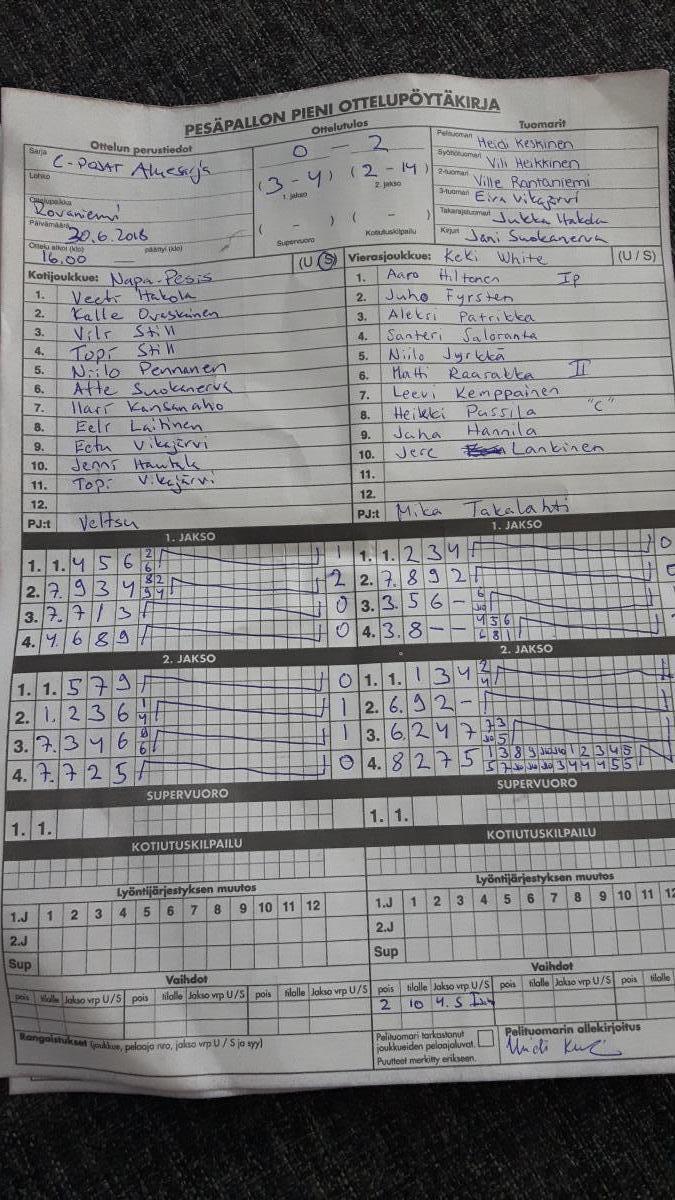 PESÄPALLON PIENI OTTELUPÖYTÄKIRJA
Ottelun perustiedot
Sarja C-POJAT Aluesarja
Lohko
Ottelupaikka Rovaniemi
Päivämäärä 30.6.2018
Ottelu alkoi (klo) 16.00 päättyi (klo)
Ottelutulos
0 - 2
(3-4) (2-14)
1. jakso 2. jakso
( - ) ( - )
Supervuoro Kotiutuskilpailu
Tuomarit
Pelituomari Heidi Keskinen
Syöttötuomari Vili Heikkinen
2-tuomari Ville Rantaniemi
3-tuomari Eira Vikajärvi
Takarajatuomari Jukka Hakola
Kirjuri Jani Suokanerva
Kotijoukkue: Napa-Pesis (U/S)
1. Veeti Hakola
2. Kalle Oraskainen
3. Vili Still
4. Topi Still
5. Niilo Pennanen
6. Atte Suokanerva
7. Ilari Kansanaho
8. Eeli Laitinen
9. Eetu Vikajärvi
10. Jenni Hautala
11. Topi Vikajärvi
12.
PJ:t Veltsu
Vierasjoukkue: Keki White (U/S)
1. Aaro Hiltonen Ip
2. Juho Fyrsten
3. Aleksi Patrikka
4. Santeri Saloranta
5. Niilo Jyrkkä
6. Matti Raarakka II
7. Leevi Kemppainen
8. Heikki Pussila "C"
9. Juha Hannila
10. Jere Lankinen
11.
12.
PJ:t Mika Takalahti
1. JAKSO
1. 1. 4 5 6 2 6 1
2. 7. 9 3 4 2
3. 7. 7 1 3 0
4. 4. 6 8 9 0
2. JAKSO
1. 1. 5 7 9 0
2. 1. 2 3 6 1 4 1
3. 7. 3 4 6 8 6 1
4. 7. 7 2 5 0
SUPERVUORO
1. 1.
KOTIUTUSKILPAILU
1. JAKSO
1. 1. 2 3 4 0
2. 7. 8 9 2
3. 3. 5 6 - 6 10
4. 3. 8 - - 4 5 6 6 8 1
2. JAKSO
1. 1. 1 3 4 2 4
2. 6. 9 2 -
3. 6 2 4 7 7 3 10 5
4. 8 2 7 5 1 3 8 9 10 10 1 2 3 4 5
5 7 10 10 10 3 4 4 4 5 5
SUPERVUORO
1. 1.
KOTIUTUSKILPAILU
Lyöntijärjestyksen muutos
1.J 1 2 3 4 5 6 7 8 9 10 11 12
2.J
Sup
Lyöntijärjestyksen muutos
1.J 1 2 3 4 5 6 7 8 9 10 11 12
2.J
Sup
Vaihdot
pois tilalle Jakso vrp U/S pois tilalle Jakso vrp U/S pois tilalle Jakso vrp U/S
Vaihdot
pois tilalle Jakso vrp U/S pois tilalle Jakso vrp U/S pois tilalle
2 10 4. S
Rangaistukset (joukkue, pelaaja nro, jakso vrp U / S ja syy)
Pelituomari tarkastanut joukkueiden pelaajaluvat.
Puutteet merkitty erikseen.
Pelituomarin allekirjoitus